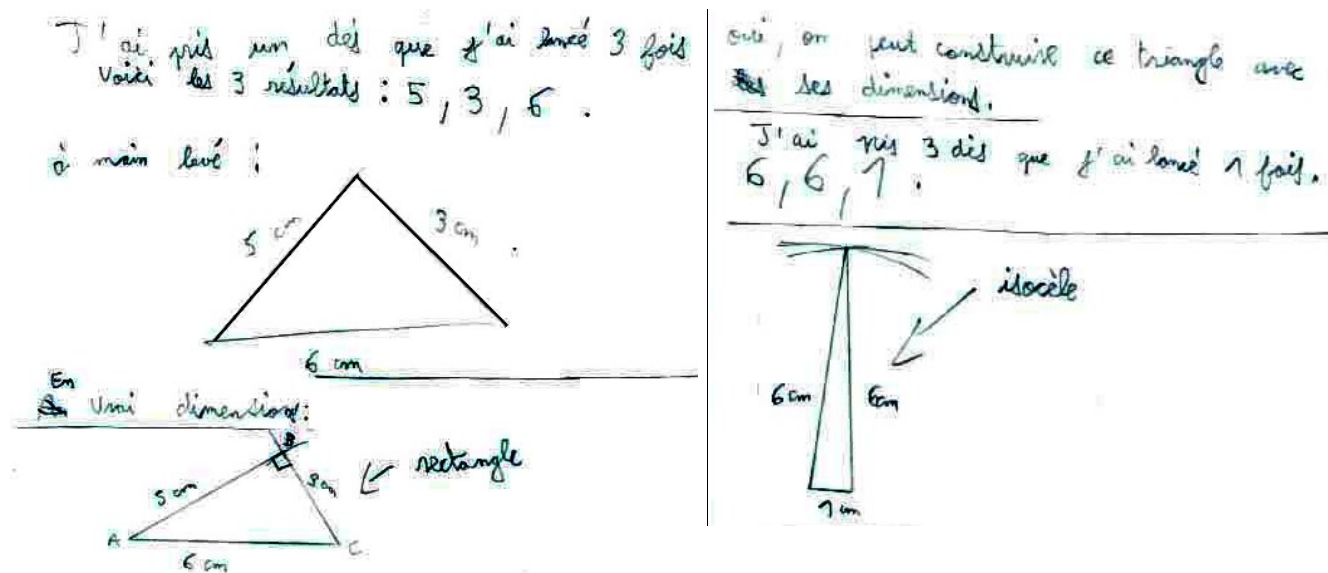 J'ai pris un dés que j'ai lancé 3 fois
Voici les 3 résultats : 5, 3, 6.
à main levé :
5 cm
3 cm
6 cm
En
vrai dimensions:
B
rectangle
5 cm
3 cm
A
C
6 cm
oui, on peut construire ce triangle avec
ses dimensions.
J'ai pris 3 dés que j'ai lancé 1 fois.
6, 6, 1.
isocèle
6 cm
6cm
1 cm